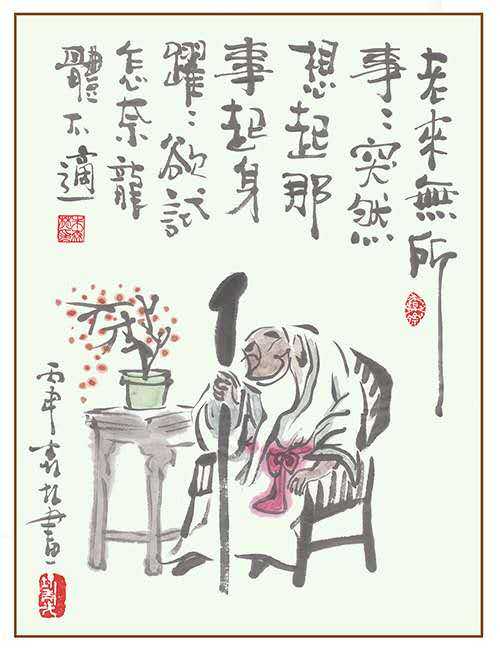 老來無所
事〻突然
想起那
事起身
躍〻欲試
怎奈龍
體不適
丙申